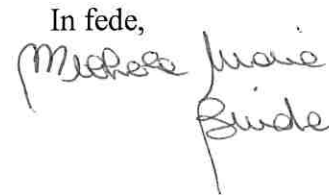 In fede,
Michele Maria
Guida